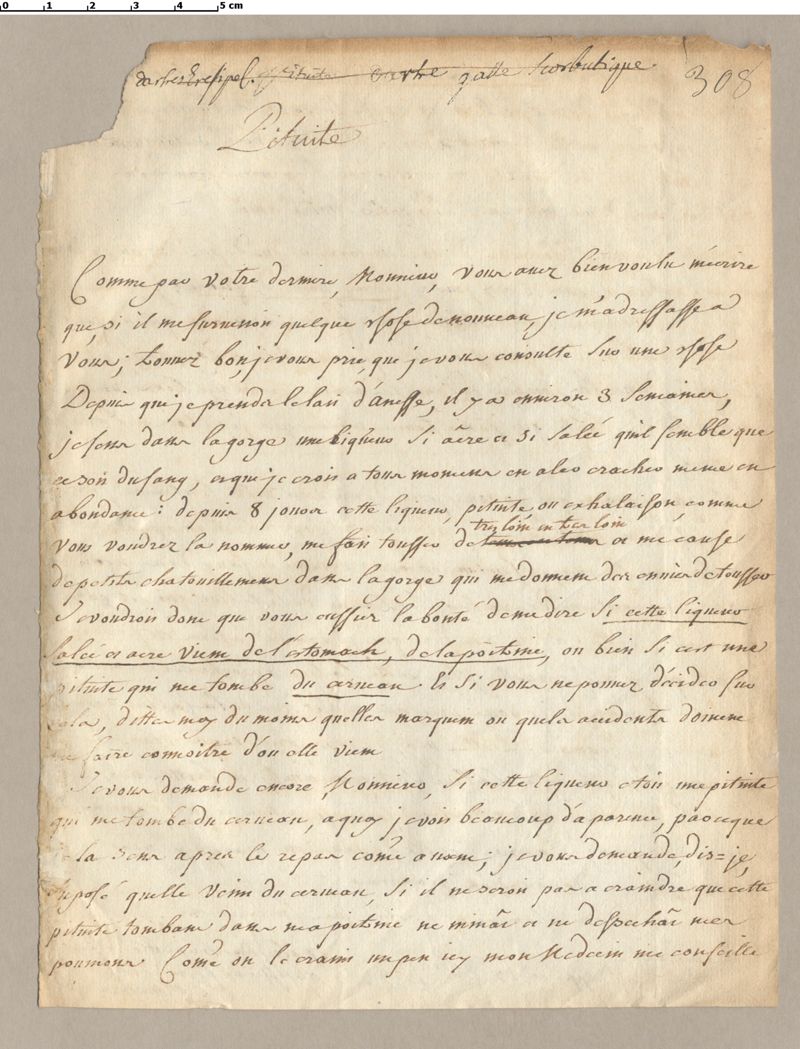 0 1 2 3 4 5 cm
dartres Eresipel. pituite dartre galle scorbutique.
308
Pituite
Comme par votre derniere, Monsieur, vous avez bien voulu m'ecrire
que, si il me survenoit quelque chose de nouveau, je m'adressasse a
vous; trouvez bon, je vous prie, que je vous consulte sur une chose
Depuis que je prends le lait d'anesse, il y a environ 3 semaines,
je sens dans la gorge une liqueur si âcre et si salée qu'il semble que
ce soit du sang, et que je crois a tous momens en aler cracher meme en
abondance: depuis 8 jours cette liqueur, pituite ou exhalaison, comme
vous voudrez la nommer, me fait tousser de tres loin en tres loin et me cause
de petits chatouillemens dans la gorge qui me donnent des envies de tousser
Je voudrois donc que vous eussiez la bonté de me dire si cette liqueur
salée et acre vient de l'estomach, de la poitrine, ou bien si c'est une
pituite qui me tombe du cerveau. Et si vous ne pouvez décider sur
cela, dittes moy du moins quelles marques ou quels accidents doivent
me faire connoitre d'ou elle vient
Je vous demande encore, Monsieur, si cette liqueur etoit une pituite
qui me tombe du cerveau, a quoy je vois beaucoup d'aparence, parceque
je la sens apres le repas come avant; je vous demande, dis=je,
suposé quelle vient du cerveau, si il ne seroit pas a craindre que cette
pituite tombant dans ma poitrine ne minât et ne dessechât mes
poumons. Come on le craint un peu icy mon Medecin me conseille